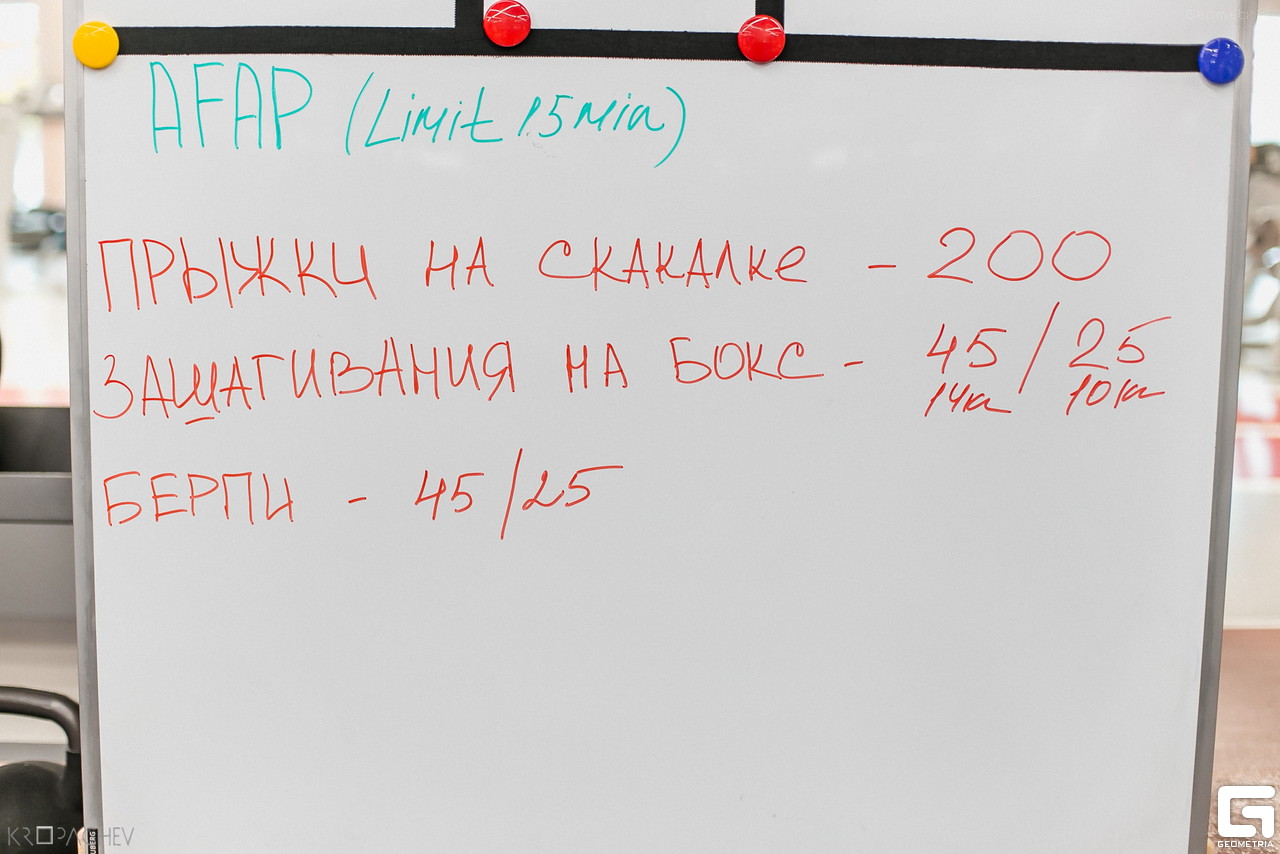 AFAP (Limit 15 min)
ПРЫЖКИ НА СКАКАЛКЕ - 200
ЗАШАГИВАНИЯ НА БОКС - 45 / 25
14кг 10кг
БЕРПИ - 45/25
KROPACHEV
GEOMETRIA